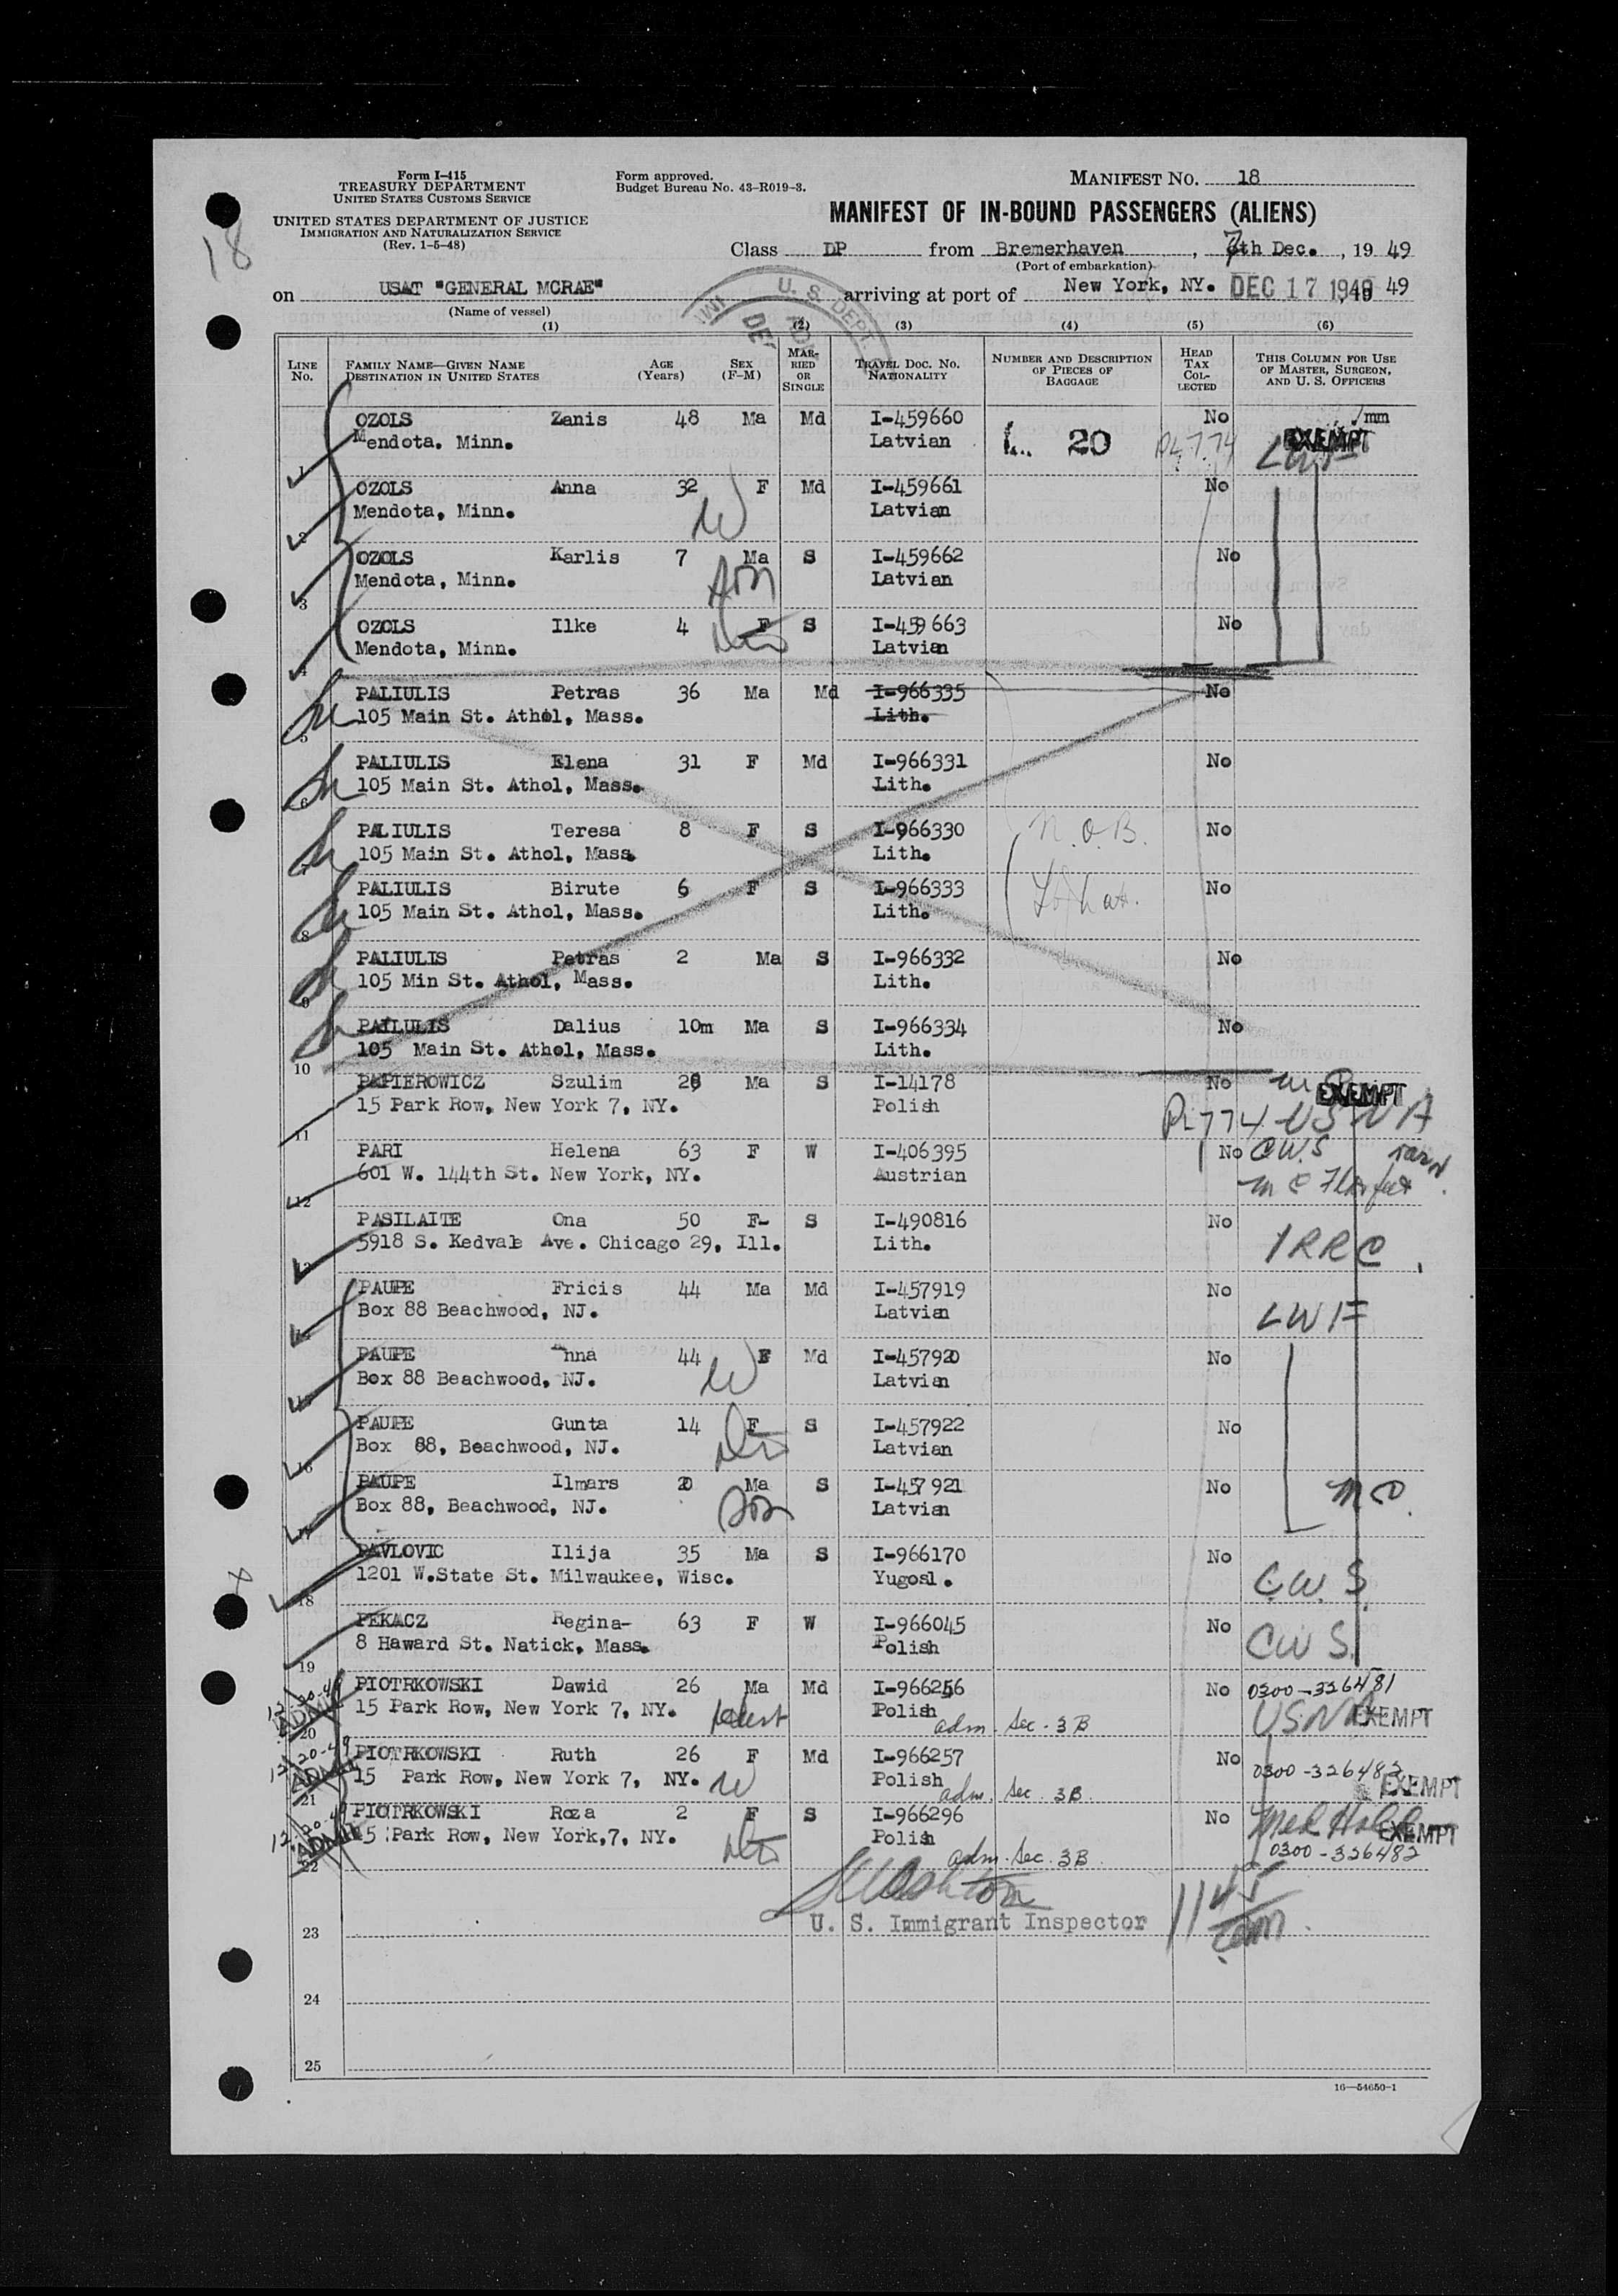 Form I-415
TREASURY DEPARTMENT
UNITED STATES CUSTOMS SERVICE
UNITED STATES DEPARTMENT OF JUSTICE
IMMIGRATION AND NATURALIZATION SERVICE
(Rev. 1-5-48)
Form approved.
Budget Bureau No. 43-R019-3.
MANIFEST NO. 18
18
MANIFEST OF IN-BOUND PASSENGERS (ALIENS)
Class DP from Bremerhaven, 7th Dec., 19 49
(Port of embarkation)
on USAT "GENERAL MCRAE" arriving at port of New York, NY. DEC 17 1949 49
(Name of vessel)
U. S. DEPT.
(1) (2) (3) (4) (5) (6)
LINE NO.
FAMILY NAME—GIVEN NAME
DESTINATION IN UNITED STATES
AGE (Years)
SEX (F-M)
MARRIED OR SINGLE
TRAVEL DOC. NO.
NATIONALITY
NUMBER AND DESCRIPTION OF PIECES OF BAGGAGE
HEAD TAX COLLECTED
THIS COLUMN FOR USE OF MASTER, SURGEON, AND U. S. OFFICERS
1 OZOLS Zanis 48 Ma Md I-459660 No
Mendota. Minn. Latvian 20 PL 774 EXEMPT LWF
2 OZOLS Anna 32 F Md I-459661 No
Mendota, Minn. W Latvian
3 OZOLS Karlis 7 Ma S I-459662 No
Mendota, Minn. son Latvian
4 OZOLS Ilke 4 F S I-459663 No
Mendota, Minn. Latvian
5 PALIULIS Petras 36 Ma Md I-966335 No
105 Main St. Athol, Mass. Lith.
6 PALIULIS Elena 31 F Md I-966331 No
105 Main St. Athol, Mass. Lith.
7 PALIULIS Teresa 8 F S I-966330 N.O.B. No
105 Main St. Athol, Mass. Lith.
8 PALIULIS Birute 6 F S I-966333 No
105 Main St. Athol, Mass. Lith.
9 PALIULIS Petras 2 Ma S I-966332 No
105 Min St. Athol, Mass. Lith.
10 PAILULIS Dalius 10m Ma S I-966334 No
105 Main St. Athol, Mass. Lith.
11 PAPIEROWICZ Szulim 28 Ma S I-14178 No EXEMPT
15 Park Row, New York 7, NY. Polish PL 774 USNA
12 PARI Helena 63 F W I-406395 No CWS
601 W. 144th St. New York, NY. Austrian
13 PASILAITE Ona 50 F- S I-490816 No
5918 S. Kedvale Ave. Chicago 29, Ill. Lith. IRRC
14 PAUPE Fricis 44 Ma Md I-457919 No
Box 88 Beachwood, NJ. Latvian LWF
15 PAUPE Anna 44 F Md I-457920 No
Box 88 Beachwood, NJ. W Latvian
16 PAUPE Gunta 14 F S I-457922 No
Box 88, Beachwood, NJ. Latvian
17 PAUPE Ilmars 20 Ma S I-457921 No
Box 88, Beachwood, NJ. son Latvian
18 PAVLOVIC Ilija 35 Ma S I-966170 No
1201 W.State St. Milwaukee, Wisc. Yugosl. C.W.S.
19 PEKACZ Regina- 63 F W I-966045 No
8 Haward St. Natick, Mass. Polish CWS.
20 PIOTRKOWSKI Dawid 26 Ma Md I-966256 No 0300-326481
12-20-49 ADMIT 15 Park Row, New York 7, NY. Polish adm. Sec. 3B USNA EXEMPT
21 PIOTRKOWSKI Ruth 26 F Md I-966257 No
12-20-49 ADMIT 15 Park Row, New York 7, NY. W Polish adm. Sec. 3B. 0300-326483 EXEMPT
22 PIOTRKOWSKI Roza 2 F S I-966296 No Med Hold
12-20-49 ADMIT 15 Park Row, New York,7, NY. Polish adm. Sec. 3B. EXEMPT 0300-326482
U. S. Immigrant Inspector
23
24
25
16—54650-1